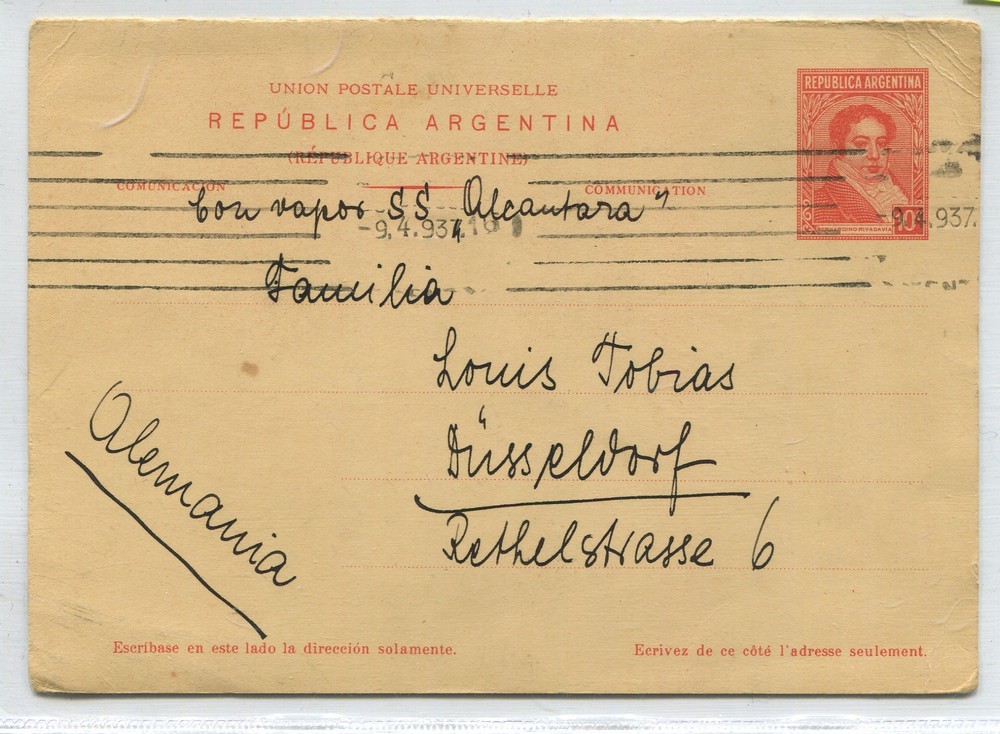 UNION POSTALE UNIVERSELLE
REPÚBLICA ARGENTINA
(RÉPUBLIQUE ARGENTINE)
REPUBLICA ARGENTINA
BERNARDINO RIVADAVIA
10
COMUNICACIÓN
COMMUNICATION
Con vapor SS Alcantara"
-9.4.937.19
-9.4.937.
Familia
Louis Tobias
Düsseldorf
Rethelstrasse 6
Alemania
Escríbase en este lado la dirección solamente.
Ecrivez de ce côté l'adresse seulement.